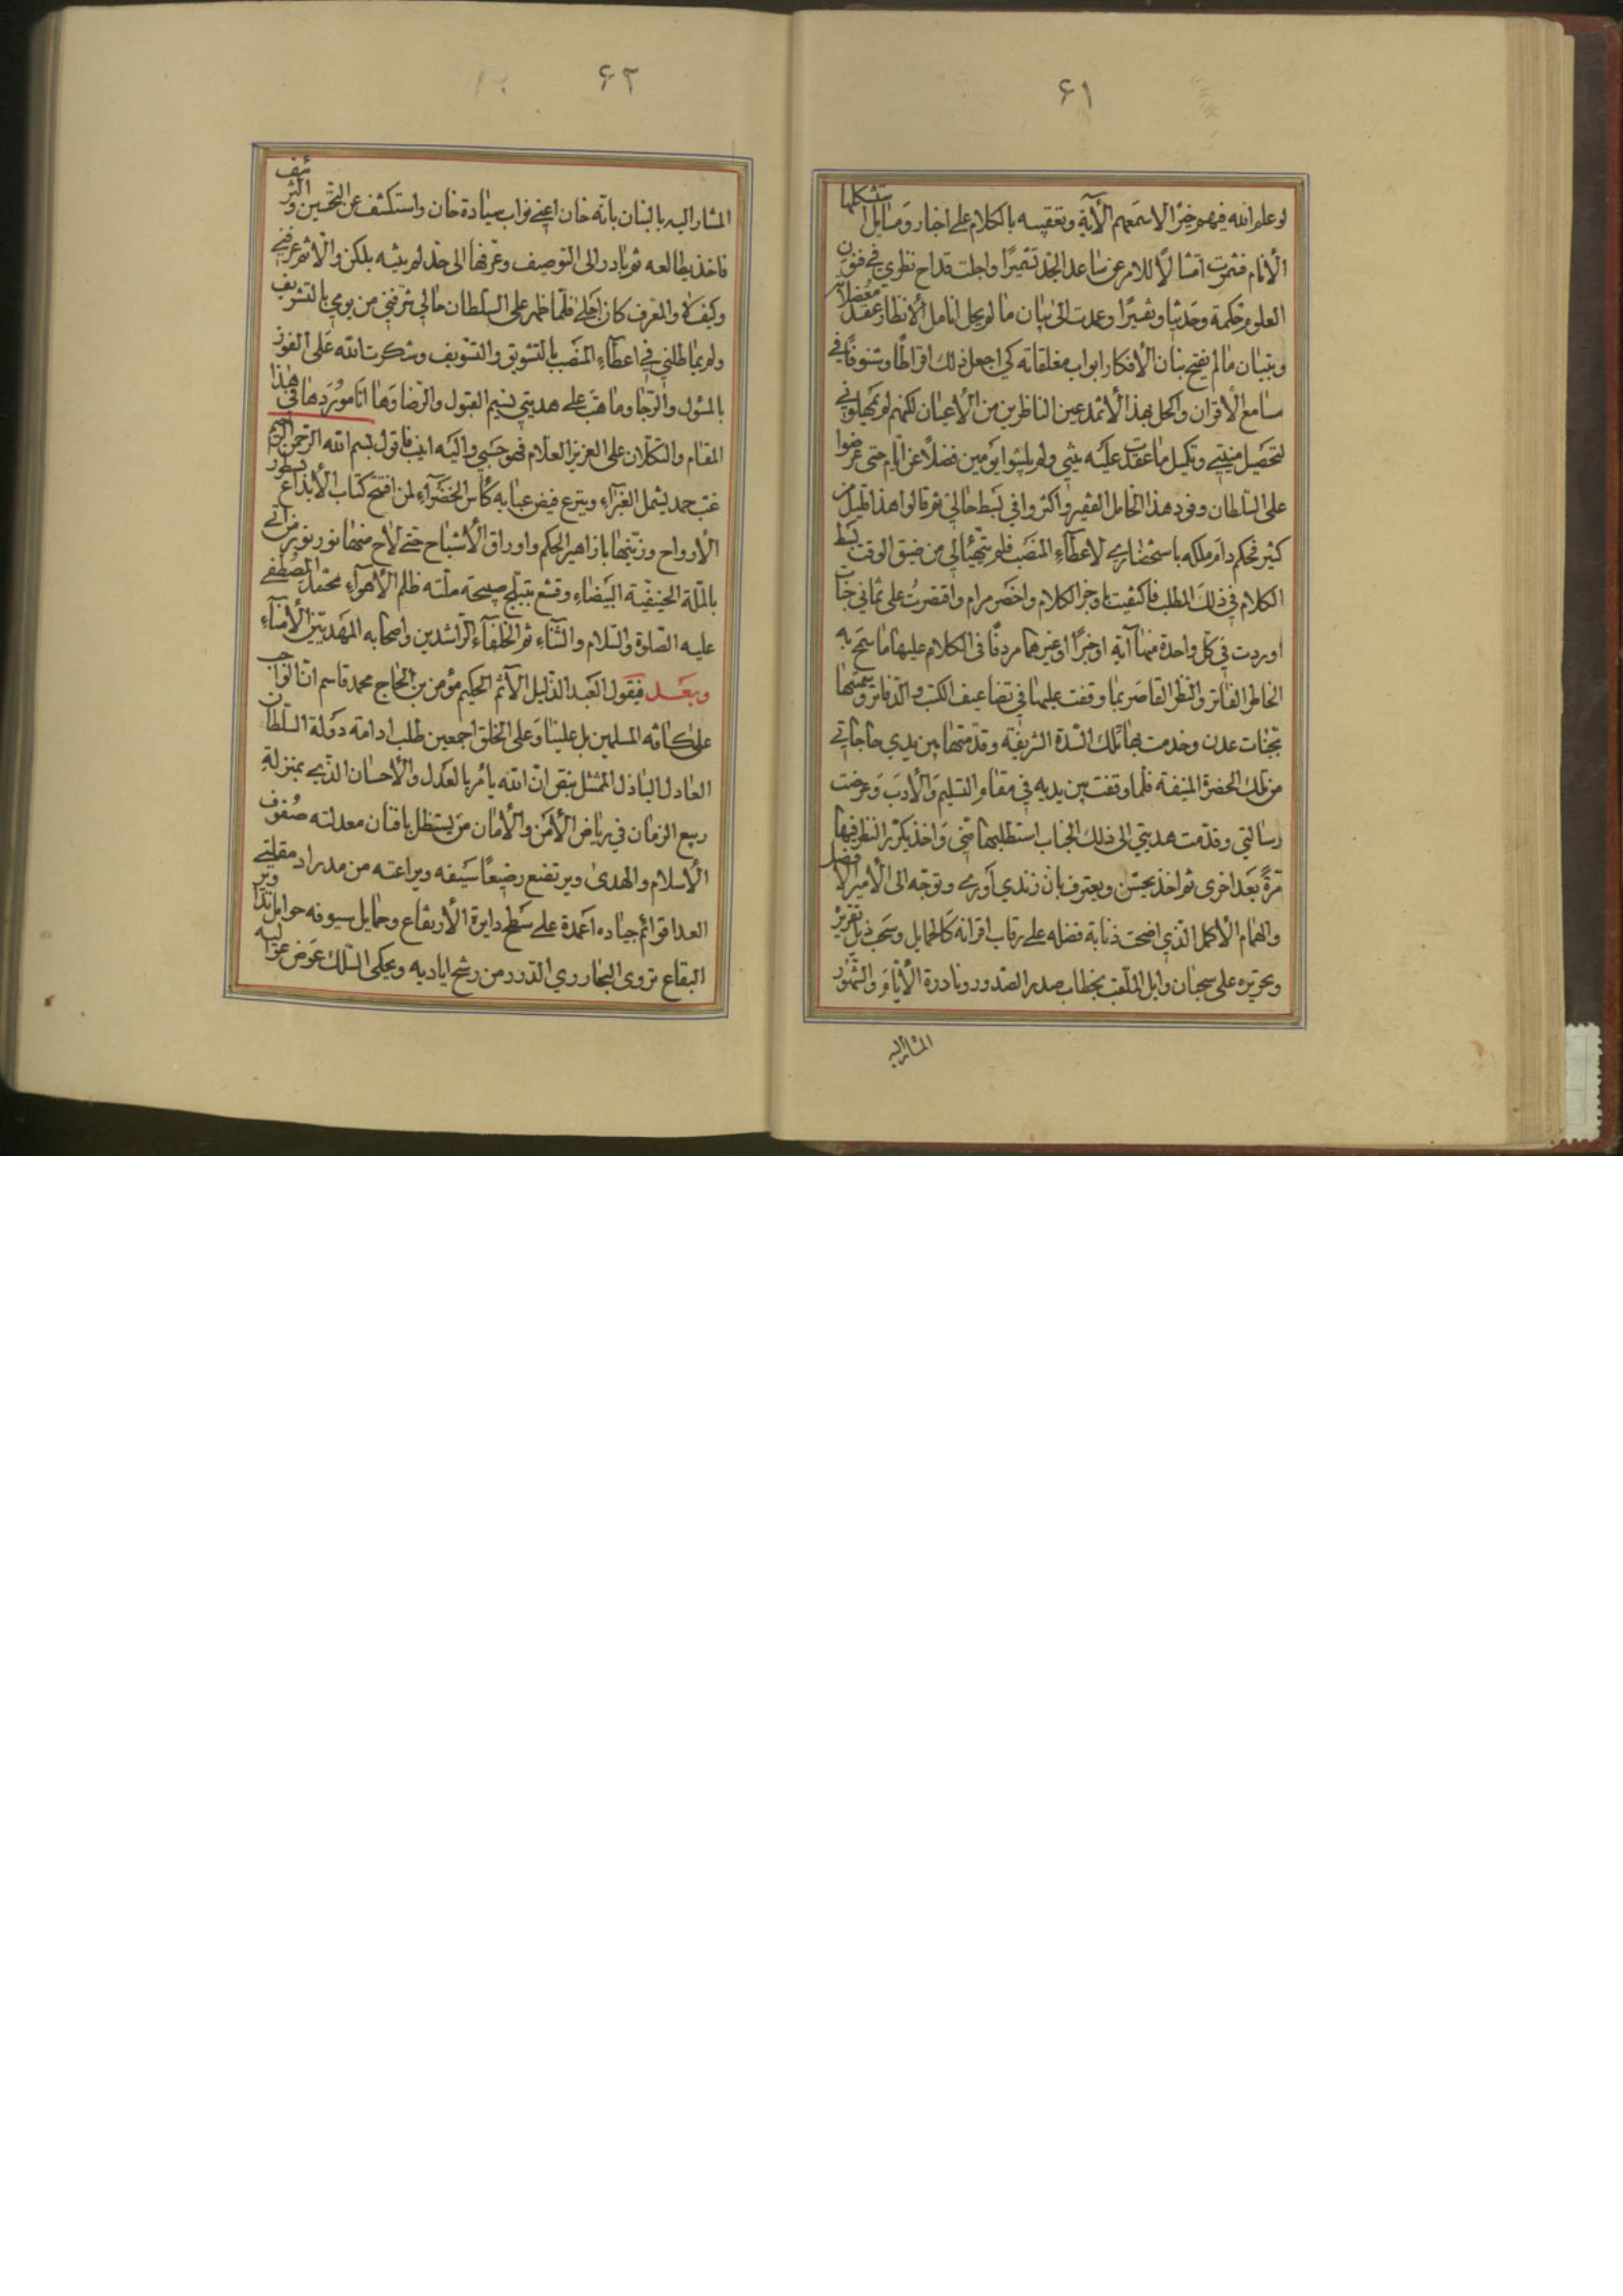 ۶۱
لو علم الله فيهم خيرًا لاسمعهم الآية وتعقيبه بالكلام على اخبار ومسايل استشكلها
الأنام فشمرت امتثالًا للامر عن ساعد الجد تشميرًا واجلت قداح نظري في فنون
العلوم حكمة وحديثا وتفسيرًا وعمدت الى بيان ما لم يحل انامل الأنظار عقد معضلاته
وتبيان ما لم يفتح بنان الأفكار ابواب مغلقاته كي اجعل ذلك اقراطًا وشنوفًا في
مسامع الأقران واكحل بهذا الأثمد عين الناظرين من الأعيان لكنهم لم يمهلوني
لتحصيل منيتي وتكميل ما عقدت عليه نيتي ولم يلبثوا يومين فضلًا عن ايام حتى عرضوا
على السلطان وفود هذا الخامل الفقير واكثروا في بسط حالي ثم قالوا هذا قليل من
كثير فحكم دام ملكه باستحضاري لاعطاء المنصب فلم يتهيأ لي من ضيق الوقت بسط
الكلام في ذلك المطلب فاكتفيت باوجز الكلام واخصر مرام واقتصرت على ثماني جنات
اوردت في كل واحدة منها آية او خبرًا او غيرهما مردفًا في الكلام عليها ما سنح به
الخاطر الفاتر والنظر القاصر بما وقفت عليها في تضاعيف الكتب والدفاتر وسميتها
بجنات عدن وخدمت بها تلك السدة الشريفة وقدمتها بين يدي حاجاتي
من تلك الحضرة المنيفة فلما وقفت بين يديه في مقام التسليم والأدب وعرضت
رسالتي وقدمت هديتي الى ذلك الجناب استطلبها مني واخذ يكرر النظر فيها
مرة بعد اخرى ثم اخذ يحسن ويعترف بان زندي اورى وتوجه الى الأمير الافضل
والهمام الأكمل الذي اضحت ذنابة فضله على رقاب اقرانه كالحمايل وسحب ذيل تقريره
وتحريره على سحبان وايل الملقب بخطاب صدر الصدور ونادرة الأيام والشهور
المشار اليه
۶۲
المشار اليه بالبنان بانه خان اعني نواب سيادة خان واستكشف عن الثمين والشرنيف
فاخذ يطالعه ثم بادر الى التوصيف وعرفها الى حد لم يثبه بلكن والا ثم عرفني
وكيف لا والمعرف كان اجلى فلما ظهر على السلطان حالي شرفني من يومي بالتشريف
ولم يماطلني في اعطاء المنصب بالتشويق والتسويف وشكرت الله على الفوز
بالمسؤل والرجا وما هب على هديتي نسيم القبول والرضا وها انا موردها في هذا
المقام والتكلان على العزيز العلام فهو حسبي واليه انيب فاقول بسم الله الرحمن الرحيم
غب حمد يشمل الغبراء ويترع فيض عبابه كأس الخضراء لمن افتتح كتاب الأبداع بسطور
الأرواح وزينها بازاهير الحكم واوراق الأشباح حتى لاح منها نور نوير من اتى
بالملة الحنيفية البيضاء وقشع بتبلج صبيحة ملته ظلم الأهواء محمد المصطفى
عليه الصلوة والسلام والثناء ثم الخلفاء الراشدين واصحابه المهديين الأمناء
وبعد فيقول العبد الذليل الآثم الحكيم مؤمن بن الحاج محمد قاسم ان الواجب
على كافة المسلمين بل علينا وعلى الخلق اجمعين طلب ادامة دولة السلطان
العادل الباذل الممتثل بنص ان الله يأمر بالعدل والأحسان الذي بمنزلة
ربيع الزمان في رياض الأمن والأمان من يستظل بافنان معدلته صنوف
الأسلام والهدى ويرتضع رضيعًا سيفه ويراعته من مدراد مقلتي
العدا قوائم جياده اعمدة على سطح دايرة الأرتفاع وحمايل سيوفه حوامل تدا وير
البقاع تروى البحار ري الدرر من رشح اياديه ويحكى السلك عوض عواليه